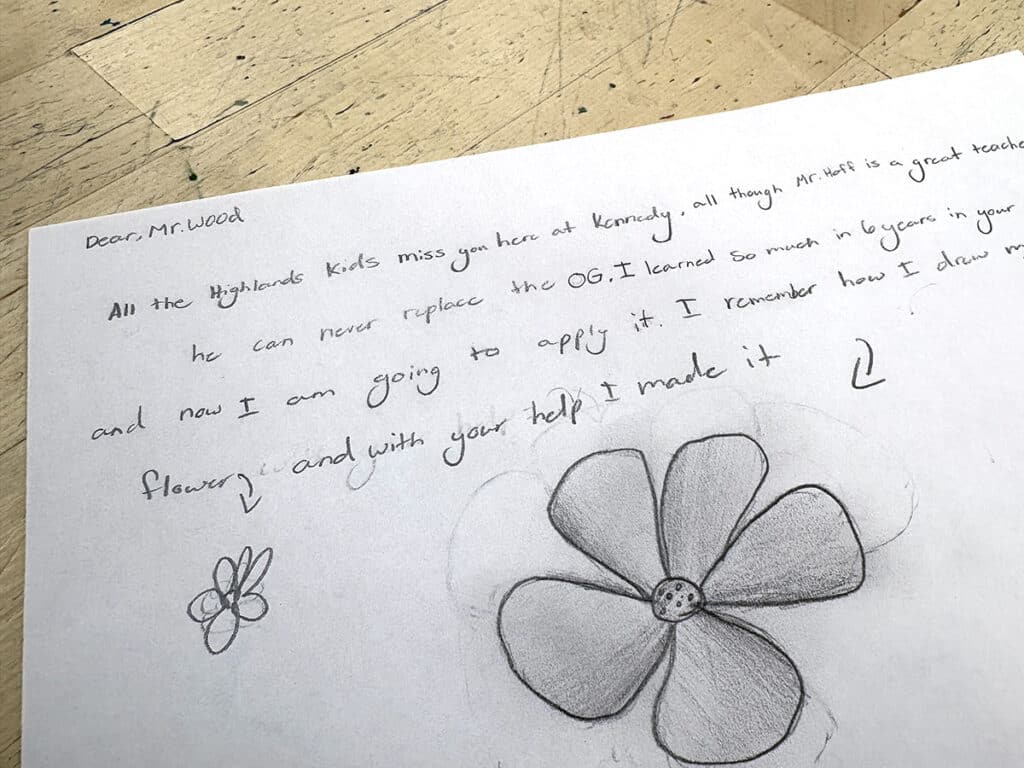 Dear, Mr. Wood
All the Highlands Kids miss you here at Kennedy, all though Mr. Hoff is a great teache
he can never replace the OG. I learned so much in 6 years in your
and now I am going to apply it. I remember how I drew m
flower and with your help I made it